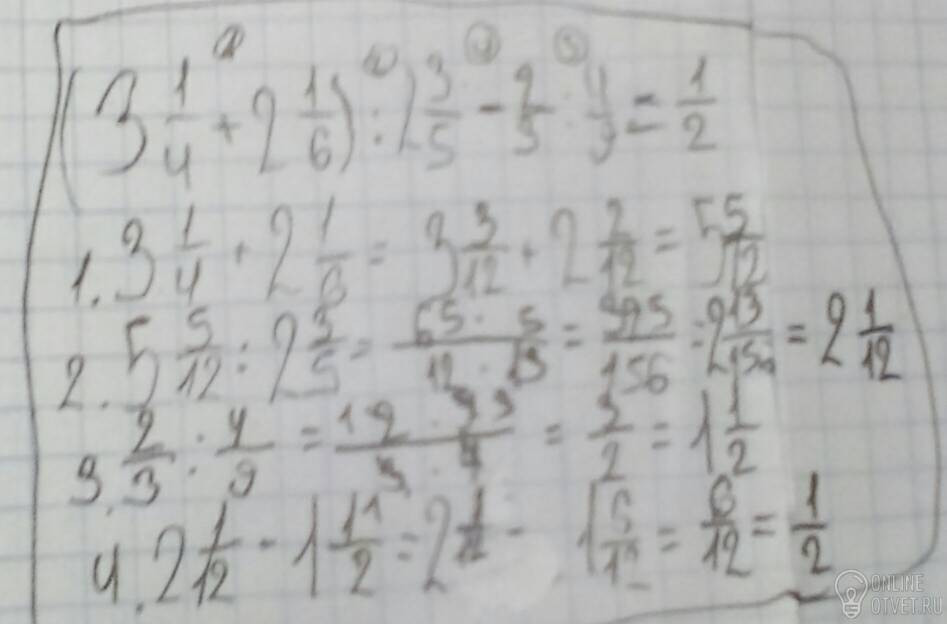 (3 1/4 + 2 1/6) : 2 3/5 - 2/3 : 4/9 = 1/2
1. 3 1/4 + 2 1/6 = 3 3/12 + 2 2/12 = 5 5/12
2. 5 5/12 : 2 3/5 = 65 · 5/12 · 13 = 325/156 = 2 13/156 = 2 1/12
3. 2/3 : 4/9 = = 3/2 = 1 1/2
4. 2 1/12 - 1 1/2 = 2 1/12 - = 6/12 = 1/2
ONLINE
OTVET.RU